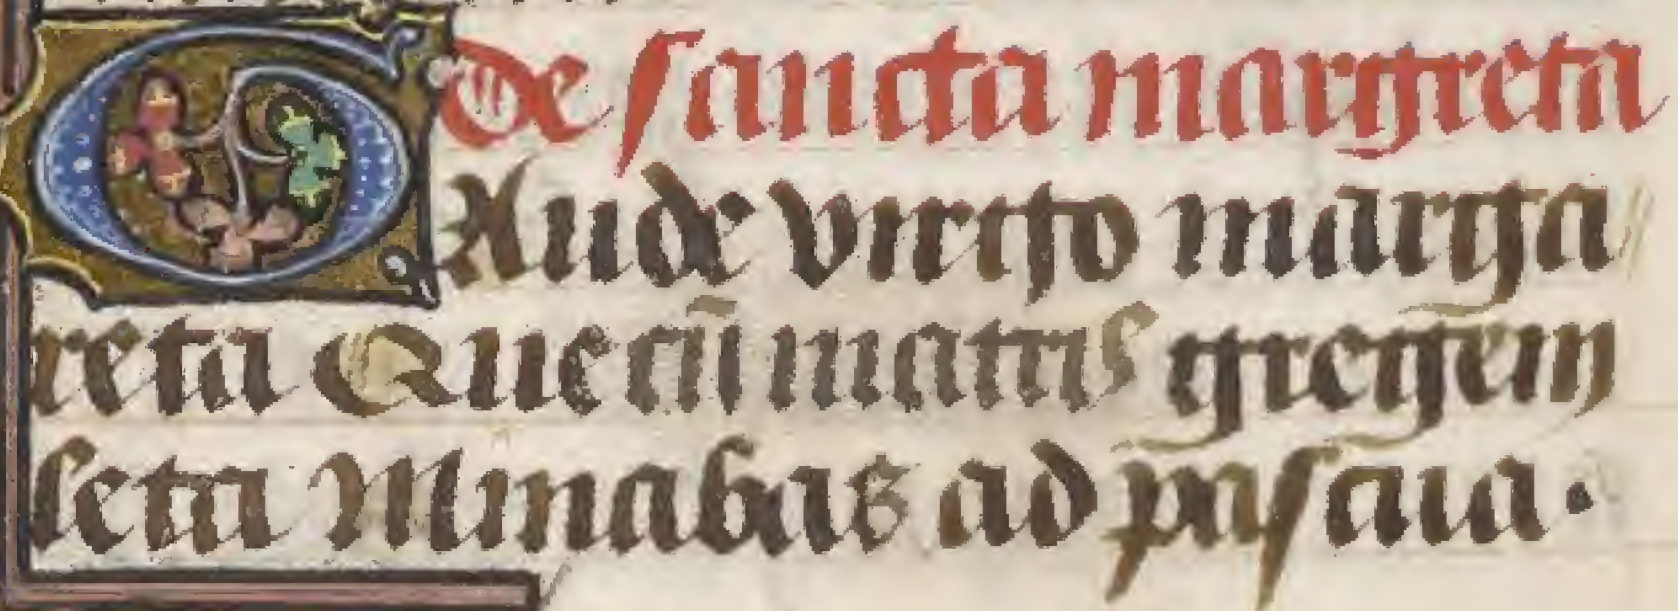 De sancta margreta
GAude virgo marga
reta Que cū matris gregem
leta Minabas ad pascua.